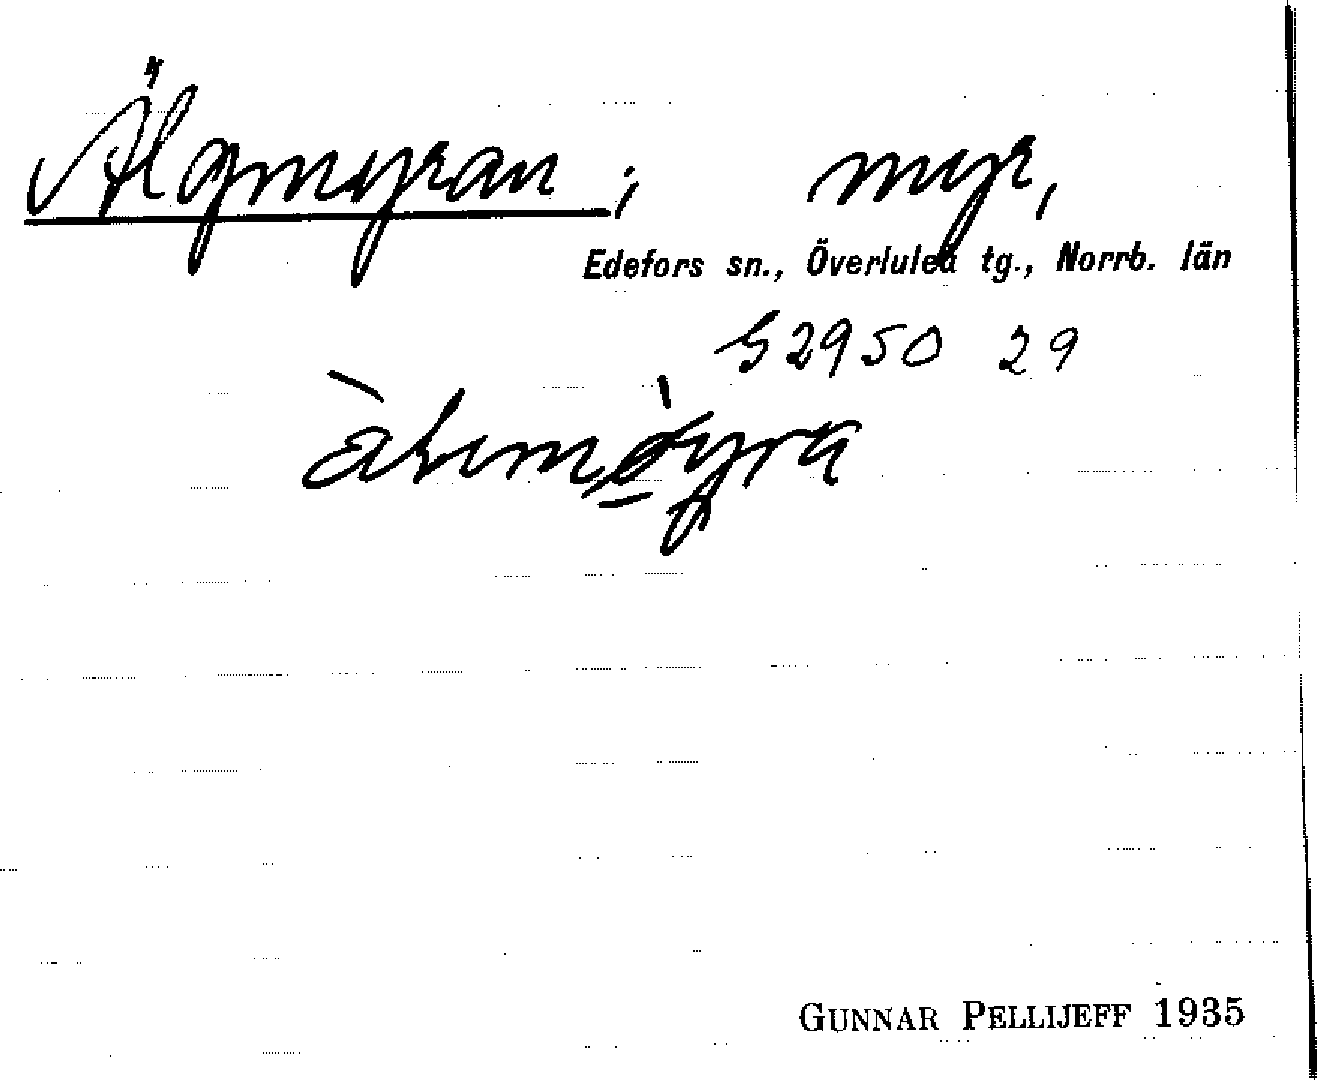 Älgmyran; myr,
Edefors sn., Överluleå tg., Norrb. län
S2950 29
GUNNAR PELLIJEFF 1935